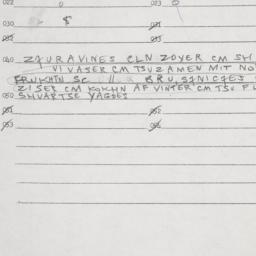 022 0 023 0
030 $ 031
032 033
040 ZAURAVINES CLN ZOYER CM SH
VI VASER CM TSUZAMEN MIT NO
FRUKHTN SC // BRUSZNICZES
050 ZISER CM KOKHN AF VINTER CM TSU FL
SHVARTSE YAGDES
051 052
053 054